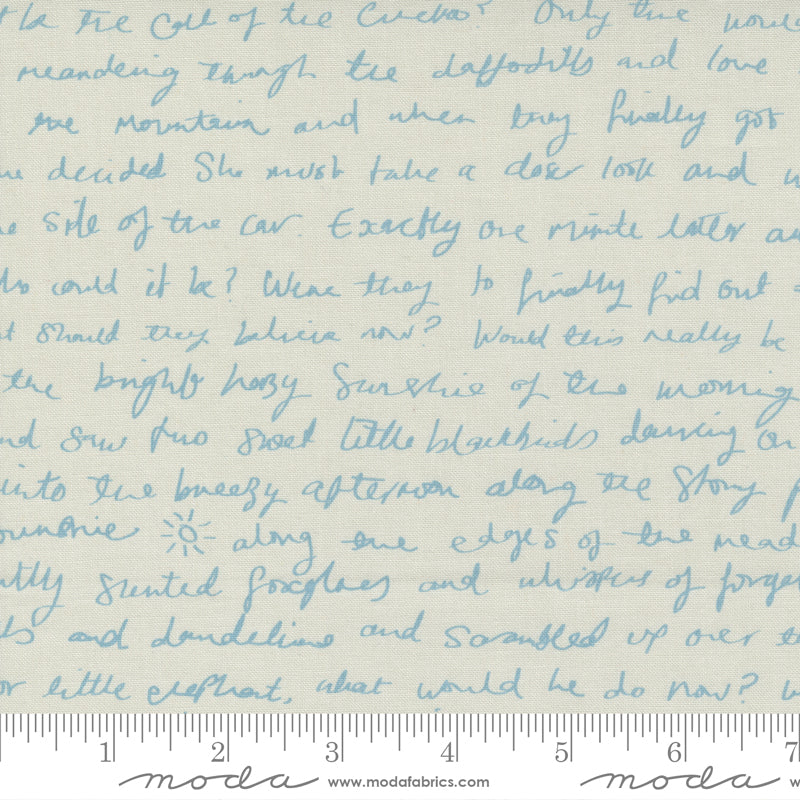 the Call of the Cuckoo? Only time would
meandering through the daffodills and love
the mountain and when they finally got
decided She must take a closer look and
the side of the car. Exactly one minute later
could it be? Were they to finally find out
should they believe now? Would this really be
the bright hazy Sunshine of the morning
and saw two sweet little blackbirds dancing on
into the breezy afternoon along the Stony
sunshine along the edges of the
scented foxgloves and whispers of
and dandelions and scrambled up over
little elephant, what would he do now?
1 2 3 4 5 6 7
moda www.modafabrics.com moda